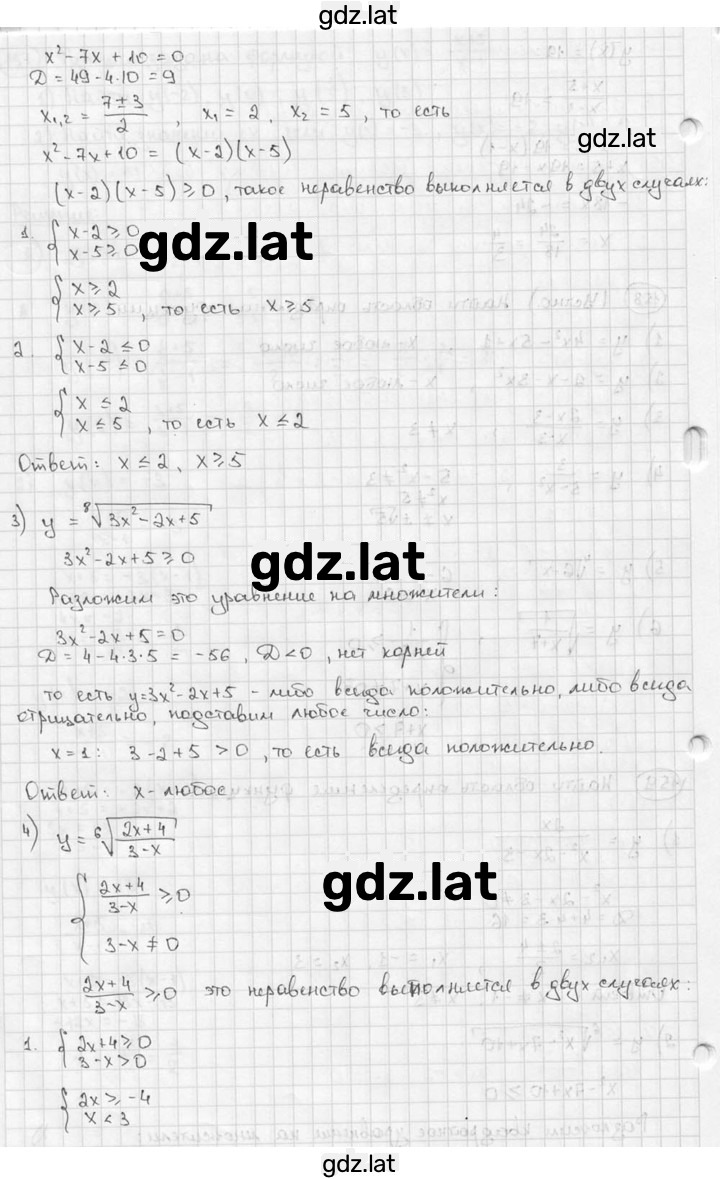 gdz.lat
x² - 7x + 10 = 0
D = 49 - 4·10 = 9
x₁,₂ = (7 ± 3)/2 , x₁ = 2, x₂ = 5, то есть
gdz.lat
x² - 7x + 10 = (x-2)(x-5)
(x-2)(x-5) ≥ 0, такое неравенство выполняется в двух случаях:
1. { x-2 ≥ 0
x-5 ≥ 0
gdz.lat
{ x ≥ 2
x ≥ 5 , то есть x ≥ 5
2. { x-2 ≤ 0
x-5 ≤ 0
{ x ≤ 2
x ≤ 5 , то есть x ≤ 2
Ответ: x ≤ 2, x ≥ 5
3) y = ⁸√(3x² - 2x + 5)
3x² - 2x + 5 ≥ 0
gdz.lat
Разложим это уравнение на множители:
3x² - 2x + 5 = 0
D = 4 - 4·3·5 = -56, D < 0, нет корней
то есть y = 3x² - 2x + 5 - либо всегда положительно, либо всегда
отрицательно, подставим любое число:
x = 1: 3 - 2 + 5 > 0, то есть всегда положительно.
Ответ: x - любое
4) y = ⁶√((2x+4)/(3-x))
{ (2x+4)/(3-x) ≥ 0
3-x ≠ 0
gdz.lat
(2x+4)/(3-x) ≥ 0 это неравенство выполняется в двух случаях:
1. { 2x+4 ≥ 0
3-x > 0
{ 2x ≥ -4
x < 3
gdz.lat